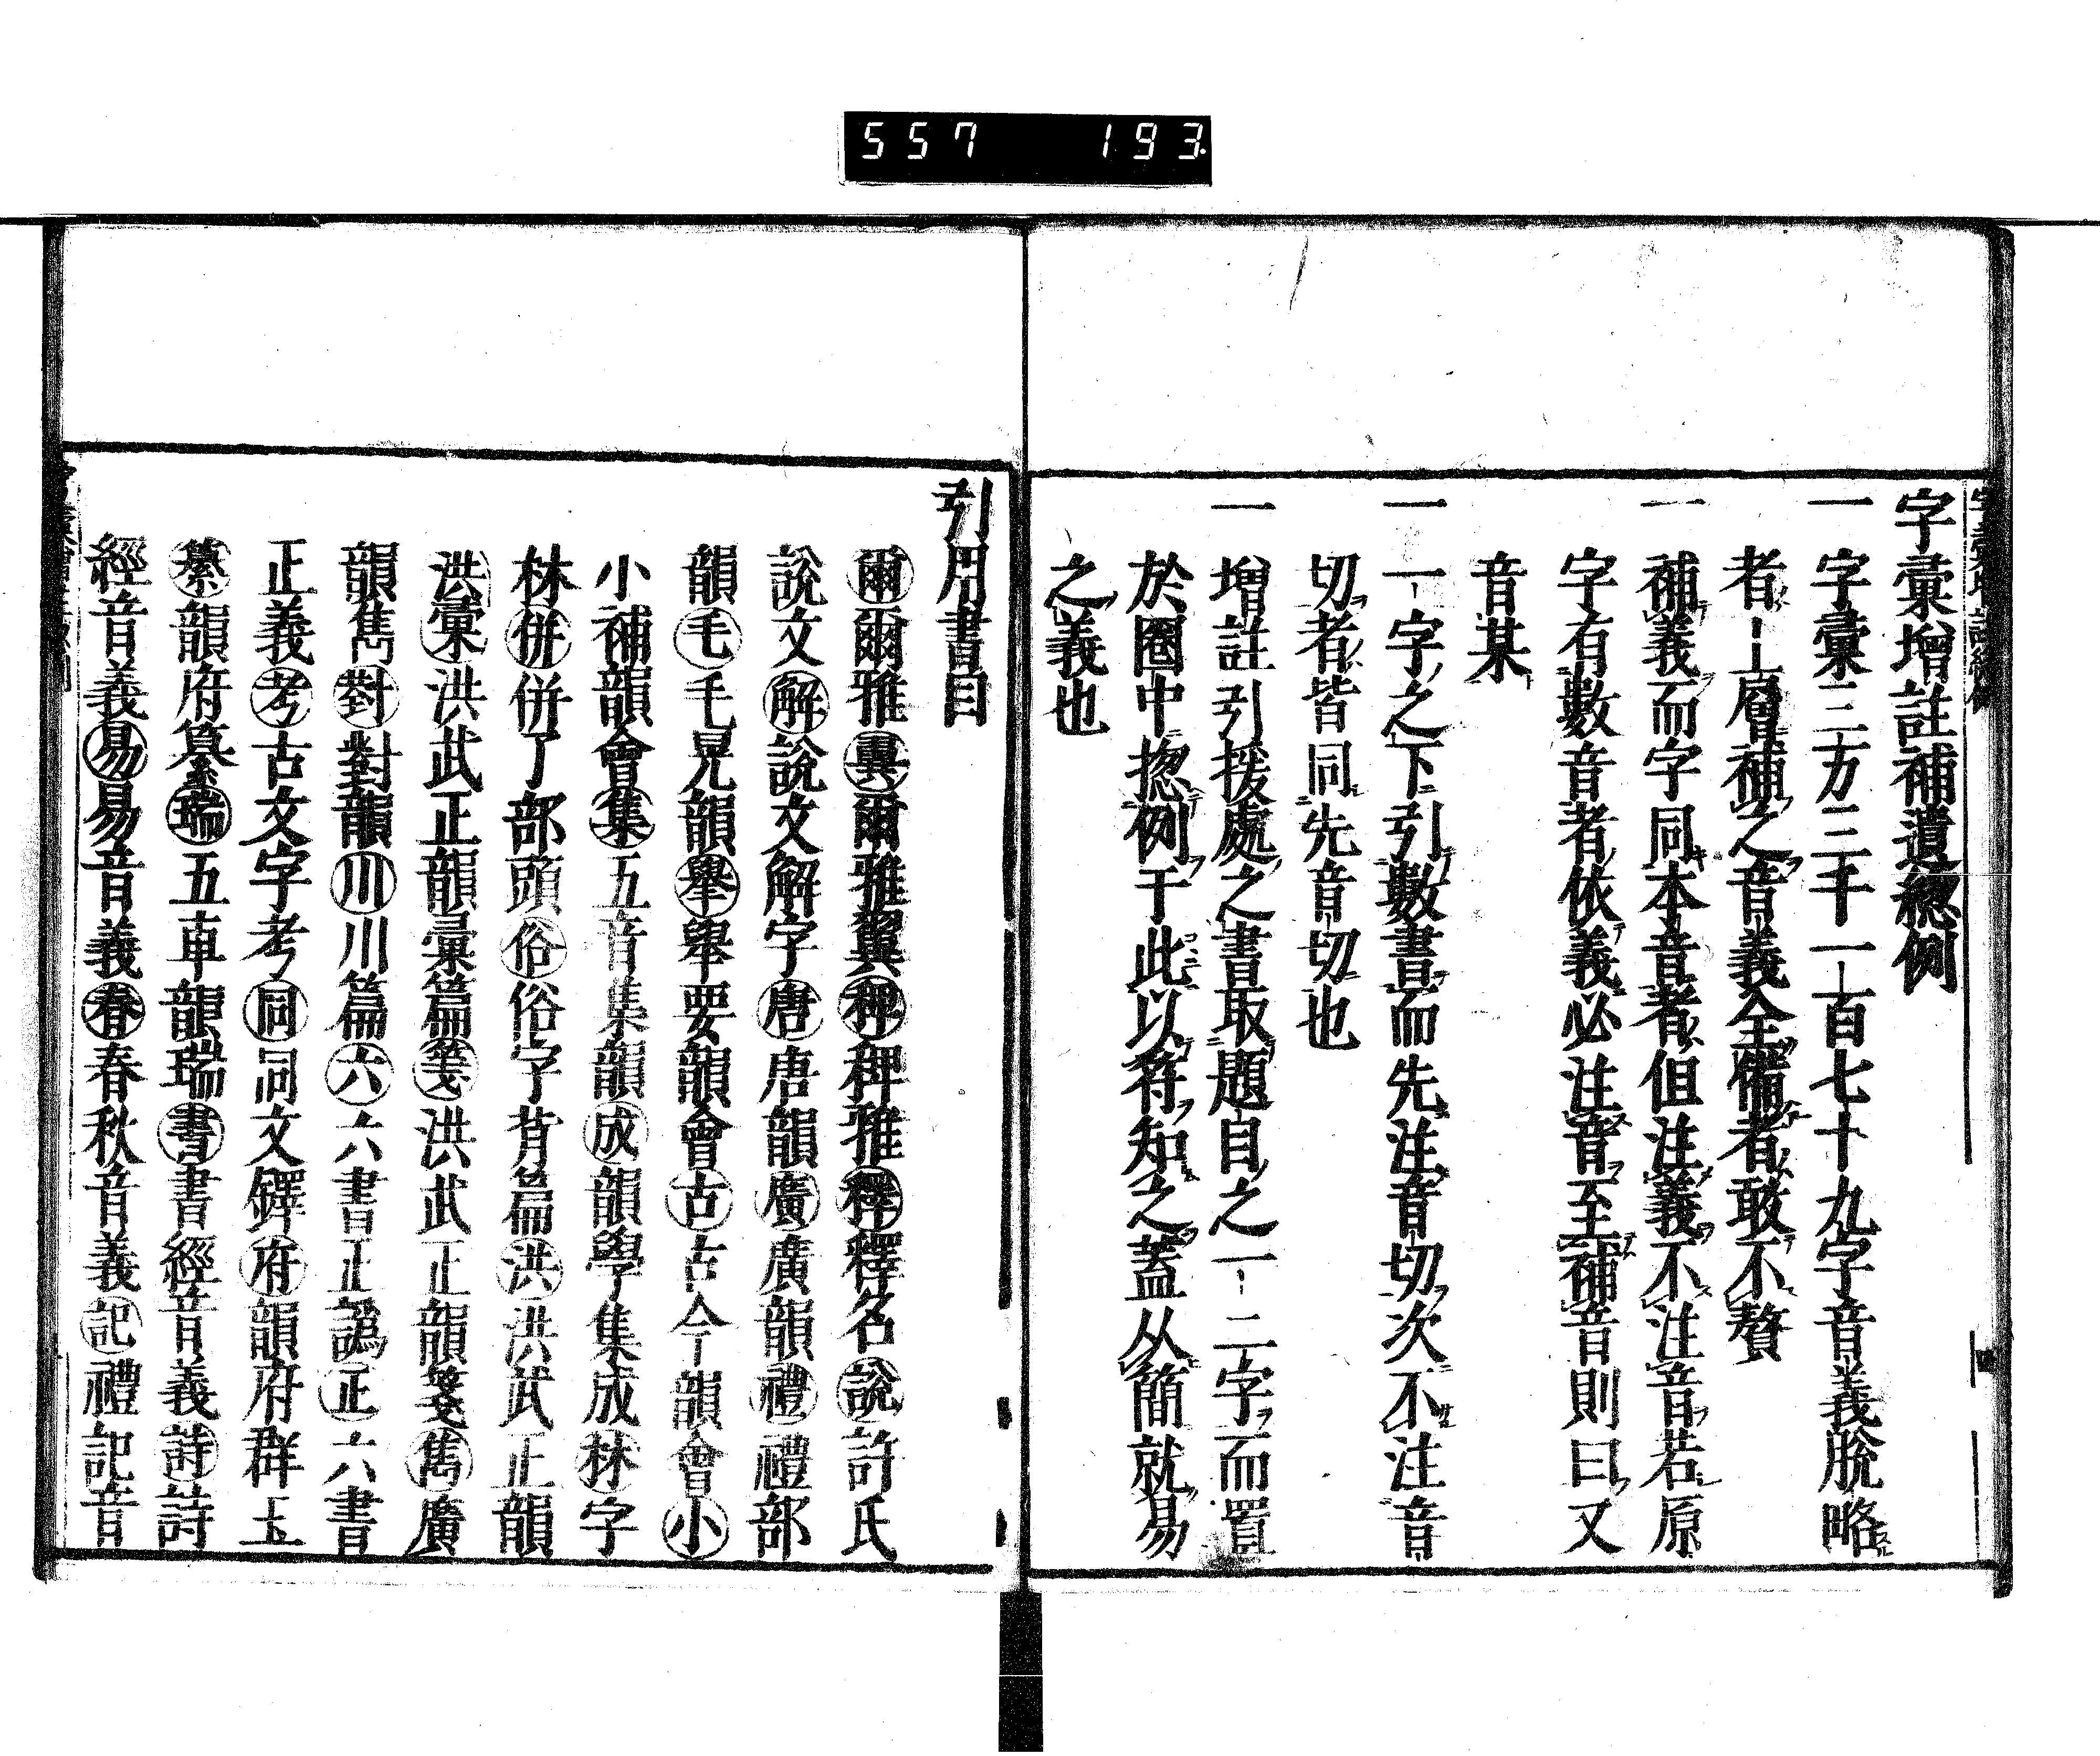 557 193
字彙增註補遺総例
一 字彙三万三千一百七十九字音義脫略
者上層補之音義全備者敢不贅
一 補義而字同本音者但注義不注音若原
字有數音者依義必注音至補音則曰又
音某
一 一字之下引數書而先注音切次不注音
切者皆同先音切也
一 增註引援處之書取題目之一二字而置
於圈中揔例于此以符知之蓋从簡就易
之義也
引用書目
爾爾雅翼爾雅翼稗稗雅釋釋名說許氏
說文解說文解字唐唐韻廣廣韻禮禮部
韻毛毛晃韻擧擧要韻會古古今韻會小
小補韻會集五音集韻成韻學集成林字
林併併了部頭俗俗字背篇洪洪武正韻
洪彙洪武正韻彙篇箋洪武正韻箋雋廣
韻雋對對韻川川篇六六書正譌正六書
正義考古文字考同同文鐸府韻府群玉
纂韻府纂瑞五車韻瑞書書經音義詩詩
經音義易易音義春春秋音義記禮記音